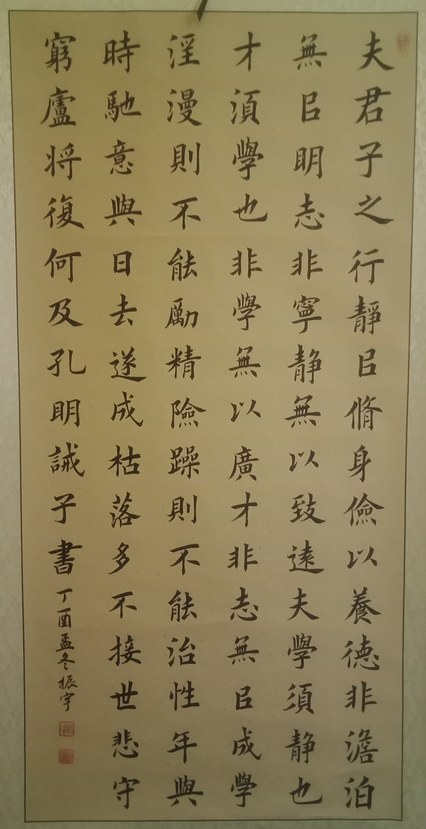 夫君子之行靜㠯脩身儉以養德非澹泊
無㠯明志非寧静無以致遠夫學須静也
才須學也非學無以廣才非志無㠯成學
淫漫則不能勵精險躁則不能治性年與
時馳意與日去遂成枯落多不接世悲守
窮廬将復何及孔明誡子書
丁酉孟冬振宇